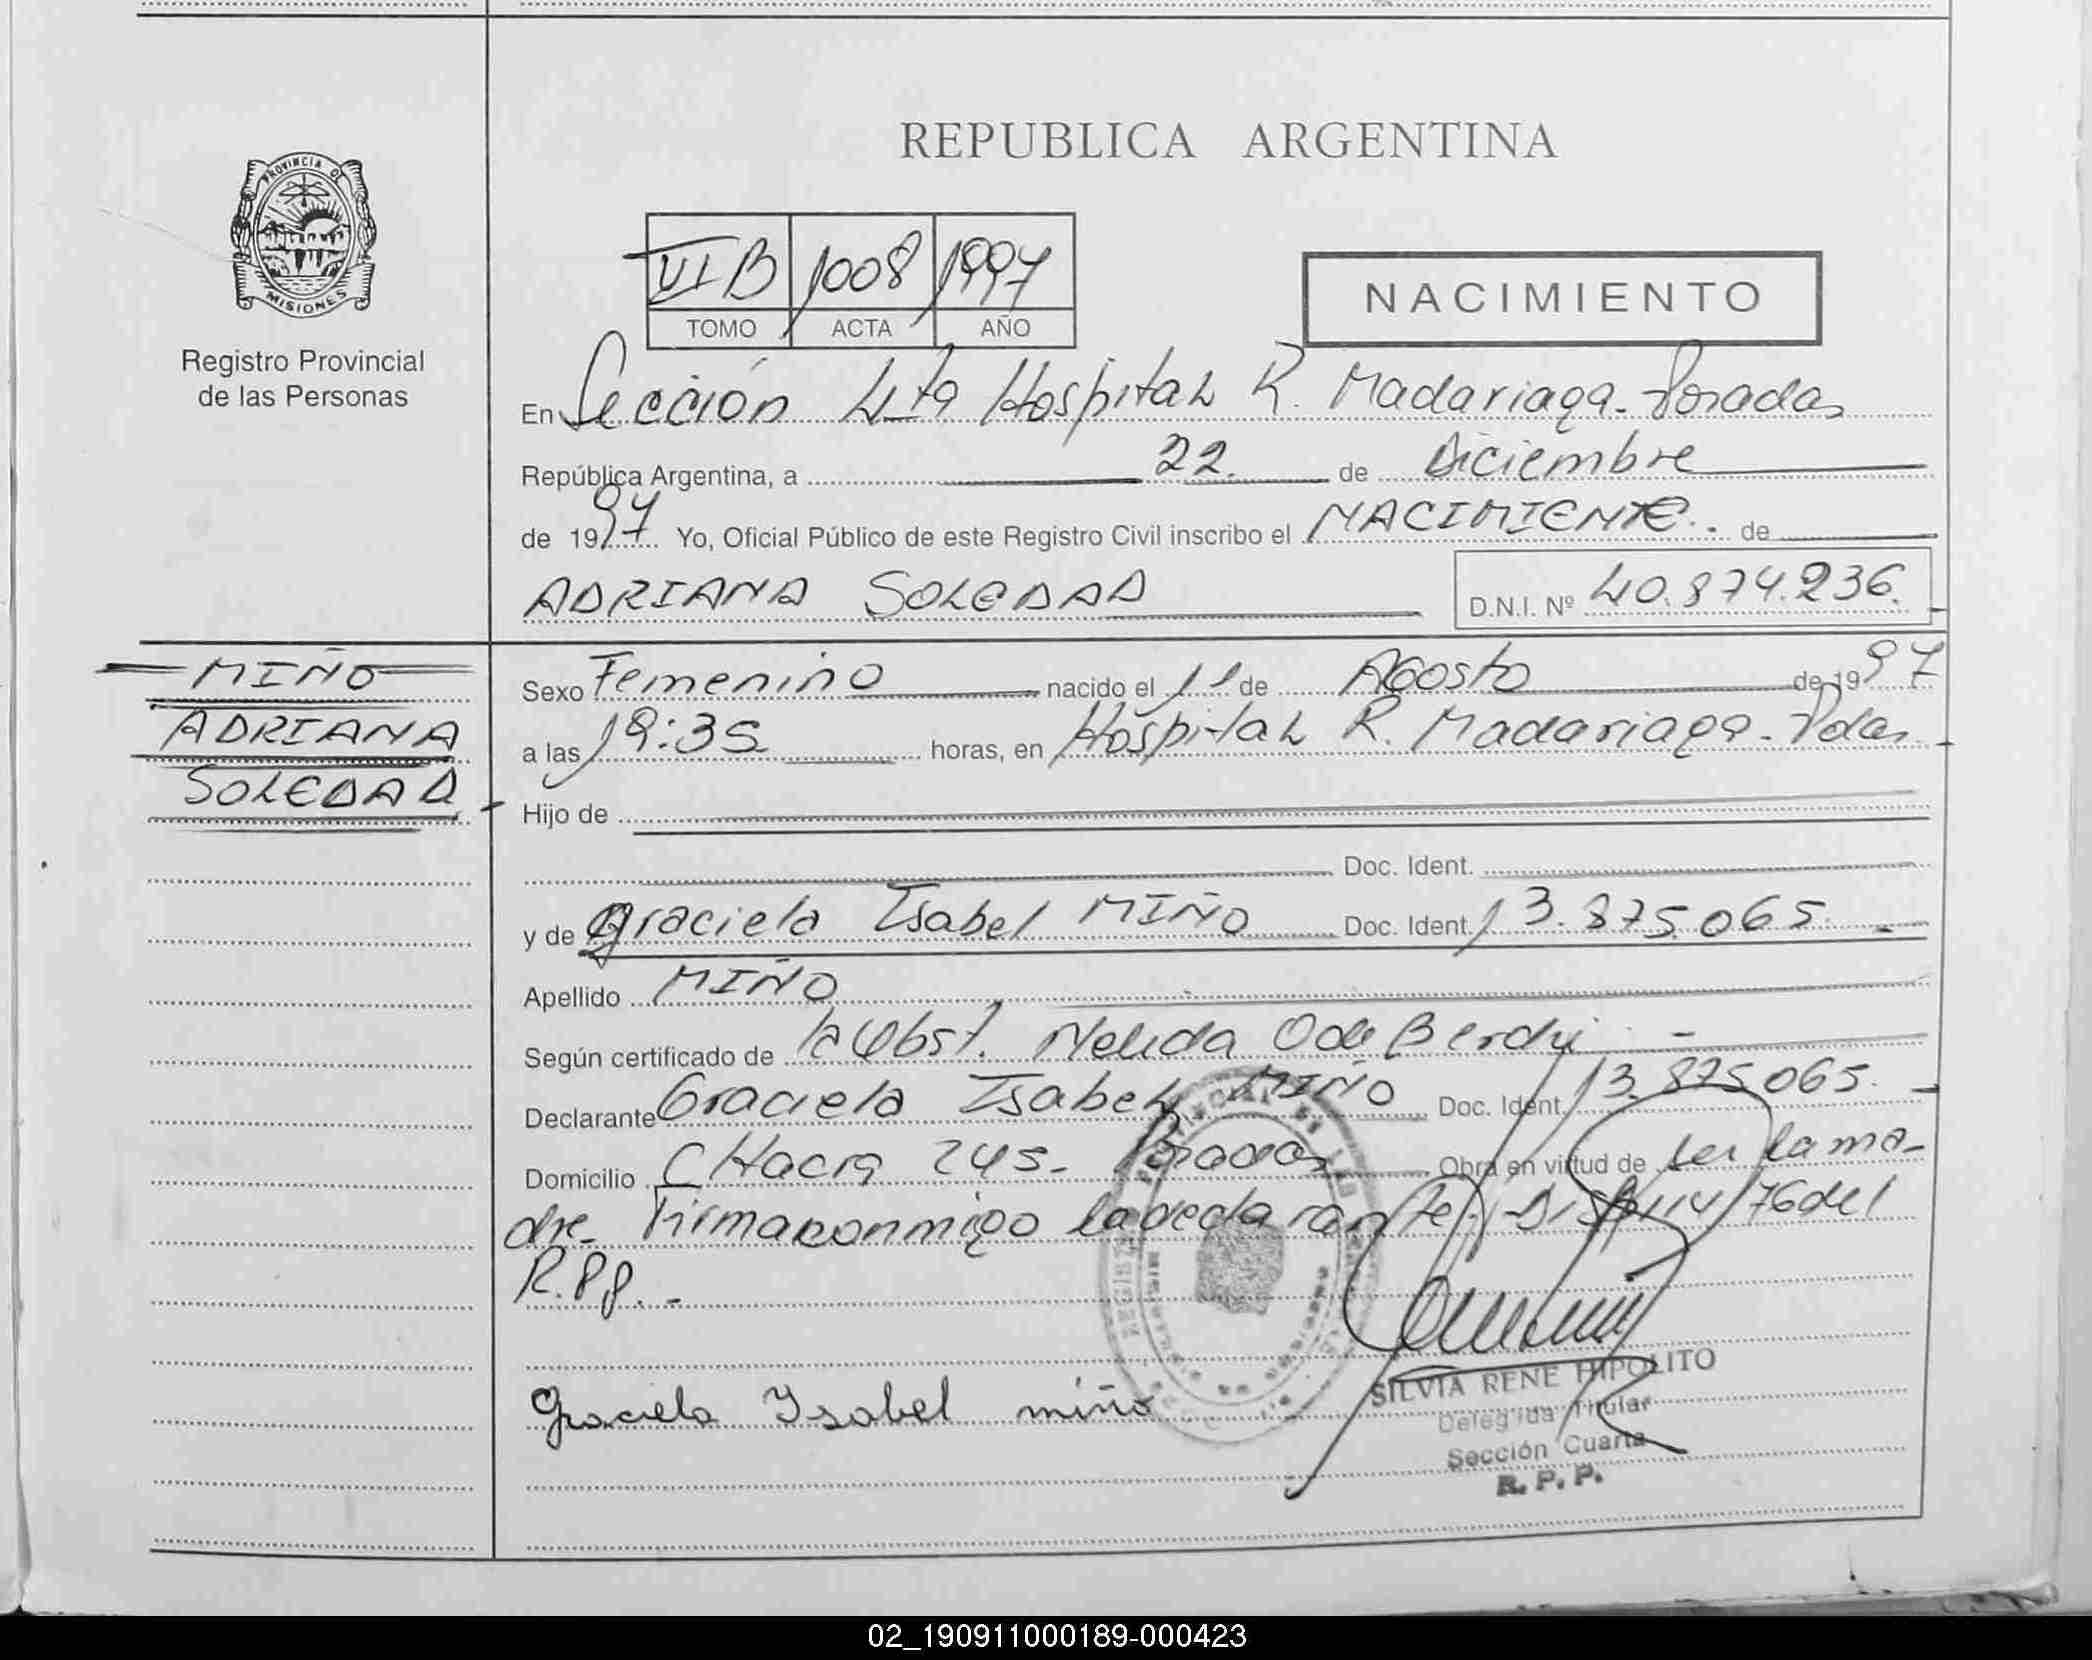 REPUBLICA ARGENTINA
PROVINCIA DE
MISIONES
Registro Provincial
de las Personas
VI B 1008 1997
TOMO ACTA AÑO
NACIMIENTO
En Sección 4ta Hospital R. Madariaga - Posadas
República Argentina, a 22. de Diciembre
de 1997 Yo, Oficial Público de este Registro Civil inscribo el NACIMIENTO. de
ADRIANA SOLEDAD D.N.I. Nº 40.874.236.
MIÑO
ADRIANA
SOLEDAD
Sexo Femenino nacido el 11 de Agosto de 1997
a las 19:35 horas, en Hospital R. Madariaga - Pdas.
Hijo de
Doc. Ident.
y de Graciela Isabel MIÑO Doc. Ident. 13.875.065.
Apellido MIÑO
Según certificado de la Obst. Nelida O de
Declarante Graciela Isabel MIÑO Doc. Ident. 13.875.065.
Domicilio CHacra 245 - Posadas Obra en virtud de ser la ma-
dre - Firma conmigo la declarante. Disp. 114/76 del
R.P.P. -
Graciela Isabel miño
SILVIA RENE HIPOLITO
Delegada Titular
Sección Cuarta
R. P. P.
02_190911000189-000423